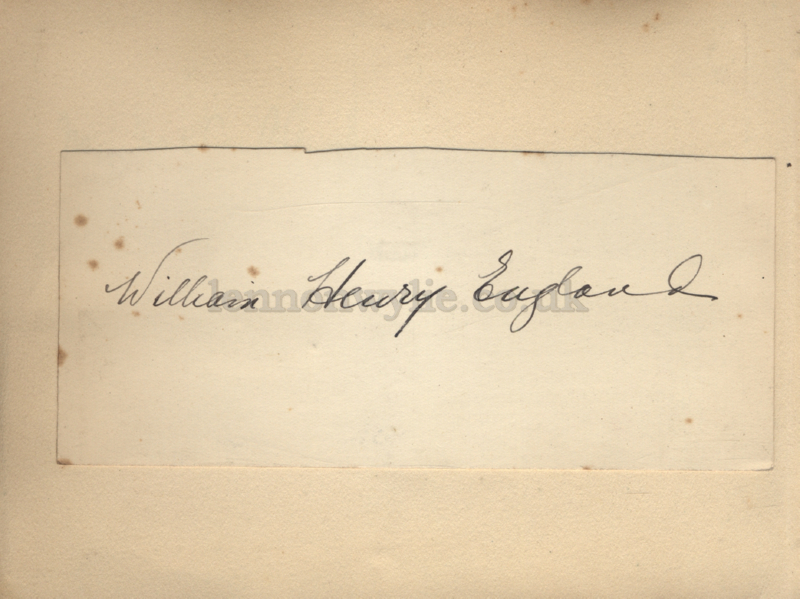 William Henry England
lennonwylie.co.uk